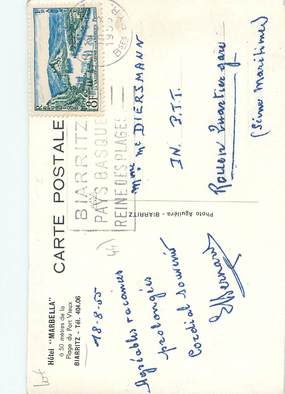 CARTE POSTALE
Hôtel "MARBELLA"
à 50 mètres de la
Plage du Port Vieux
BIARRITZ - Tél. 404.06
18-8-55
Agréables vacances
prolongées
Cordial souvenir
Photo Aguiléra - BIARRITZ
BIARRITZ
PAYS BASQUE
REINE DES PLAGES
Mme Mr DIERSMANN
IN. P.T.T.
Rouen
(Seine Maritime)